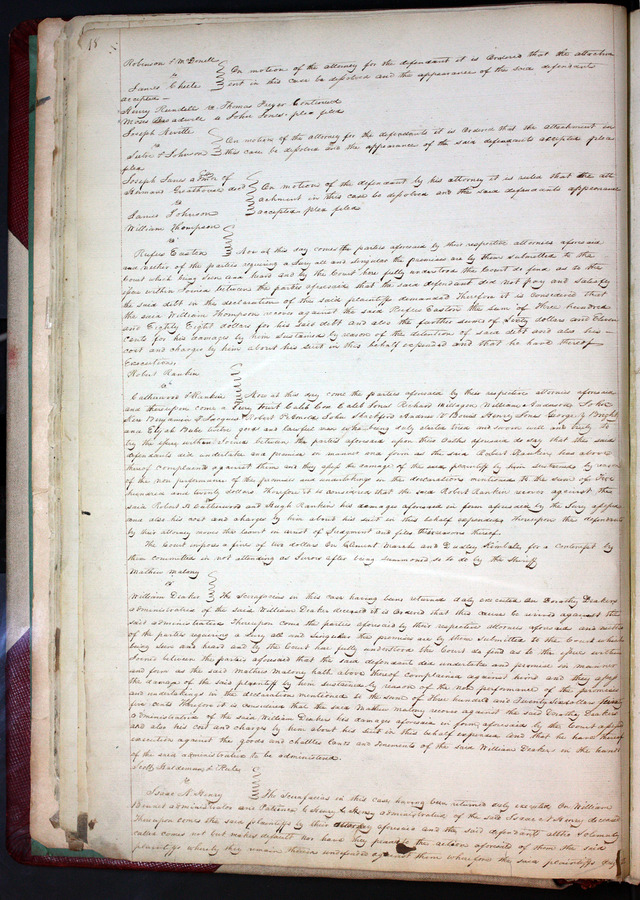 18
Robinson & McDonell
vs
James Cheele
On motion of the attorney for the defendant it is ordered that the attachment
sort in this case be dissolved and the appearance of the said defendants
accepted
Henry vs Thomas Continued
Moses Treadwell vs John Jones plea filed
Joseph Neville
vs
Suter & Johnson
On motion of the attorney for the defendants it is ordered that the attachment in
this case be dissolved and the appearance of the said defendants accepted plea
plea
Joseph Janes of
Hermans Greathouse decd
vs
James Johnson
On motion of the defendant by his attorney it is ruled that the att
achment in this case be dissolved and the said defendants appearance
accepted plea filed
William Thompson
vs
Rufus Easton
Now at this day comes the parties aforesaid by their respective attornies aforesaid
and neither of the parties requiring a Jury all and singular the premises are by them submitted to the
Court which being seen and heard and by the Court here fully understood the Court do find as to the
issue within Joined between the parties aforesaid that the said defendant did not pay and satisfy
the said debt in the declaration of the said plaintiff demanded Therefore it is considered that
the said William Thompson recover against the said Rufus Easton the sum of Three hundred
and Eighty Eight dollars for his said debt and also the further sum of Sixty dollars and Eleven
cents for his damages by him sustained by reason of the detention of said debt and also his
cost and charges by him about his suit in this behalf expended and that he have thereof
Execution
Robert Rankin
vs
Catherwood & Rankin
Now at this day come the parties aforesaid by their respective attornies aforesaid
and thereupon come a Jury towit Caleb Cox Caleb Jones Richard Milligan, William Anderson, John
Benjamin F Robert John Andrew Henry Jones George Y Bright
and Elijah twelve good and lawful men who being duly elected tried and sworn well and truly to
try the issue within Joined between the parties aforesaid upon their Oaths aforesaid do say that the said
defendants did undertake and promise in manner and form as the said Robert Rankin has above
thereof complained against them and they assess the damage of the said plaintiff by him sustained by reason
of the non performance of the promises and undertakings in the declaration mentioned to the sum of Five
hundred and twenty dollars Therefore it is considered that the said Robert Rankin recover against the
said Robert H Catherwood and Hugh Rankin his damages aforesaid in form aforesaid by the Jury assessed
and also his cost and charges by him about his suit in this behalf expended Thereupon the defendants
by their attorney moves the Court in arrest of Judgment and files their reasons thereof
The Court impose a fine of two dollars On Clement and Dudley Kimball for a contempt by
them committed in not attending as Jurors after being summoned so to do by the Sheriff
Mathew Malony
vs
William Deakers
The Scirafacias in this case having been returned duly executed On Dorothy Deakers
administratrix of the said William Deaker deceased it is ordered that this cause be revived against the
said administratrix Thereupon come the parties aforesaid by their respective attornies aforesaid and neither
of the parties requiring a Jury all and singular the premises are by them submitted to the Court which
being seen and heard and by the Court here fully understood the Court do find as to the issue within
Joined between the parties aforesaid that the said defendant did undertake and promise in manner
and form as the said Mathew Malony hath above thereof complained against him and they assess
the damage of the said plaintiff by him sustained by reason of the non performance of the promises
and undertakings in the declaration mentioned to the sum of three hundred and Twenty Six dollars
five cents Therefore it is considered that the said Mathew Malony recover against the said Dorothy Deakers
administratrix of the said William Deakers his damages aforesaid in form aforesaid by the Court assessed
and also his cost and charges by him about his suit in this behalf expended and that he have thereof
execution against the goods and chattles lands and tenements of the said William Deakers in the hands
of the said administratrix to be administered
Scott, Haldeman & Rules
vs
Isaac N. Henry
The Scirafacias in this case having been returned duly executed On William
Bennet administrator and Patience C. Henry administratrix of the said Isaac N Henry deceased
Thereupon comes the said plaintiffs by their attorney aforesaid and the said defendants altho Solemnly
called comes not but makes default nor have they plead to the action aforesaid of them the said
plaintiffs whereby they remain therein undefended against them wherefore the said plaintiffs